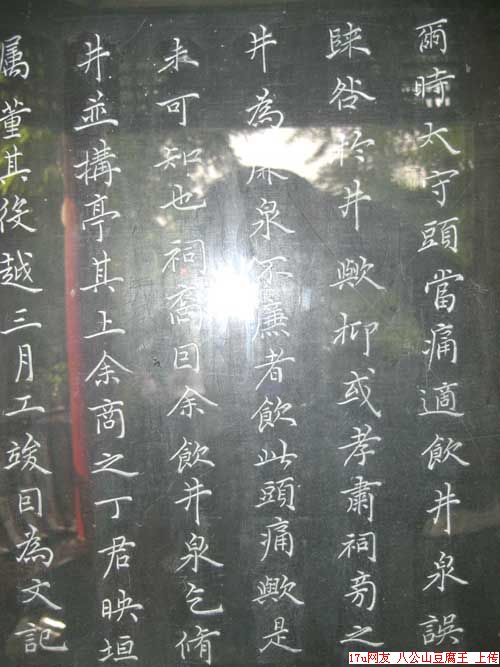 爾時太守頭當痛適飲井泉誤
歸咎於井歟抑或孝肅祠旁之
井為廉泉不廉者飲此頭痛歟是
未可知也祠裔囙余飲井泉乞脩
井並搆亭其上余商之丁君映垣
属董其役越三月工竣囙為文記
17u网友 八公山豆腐王 上传